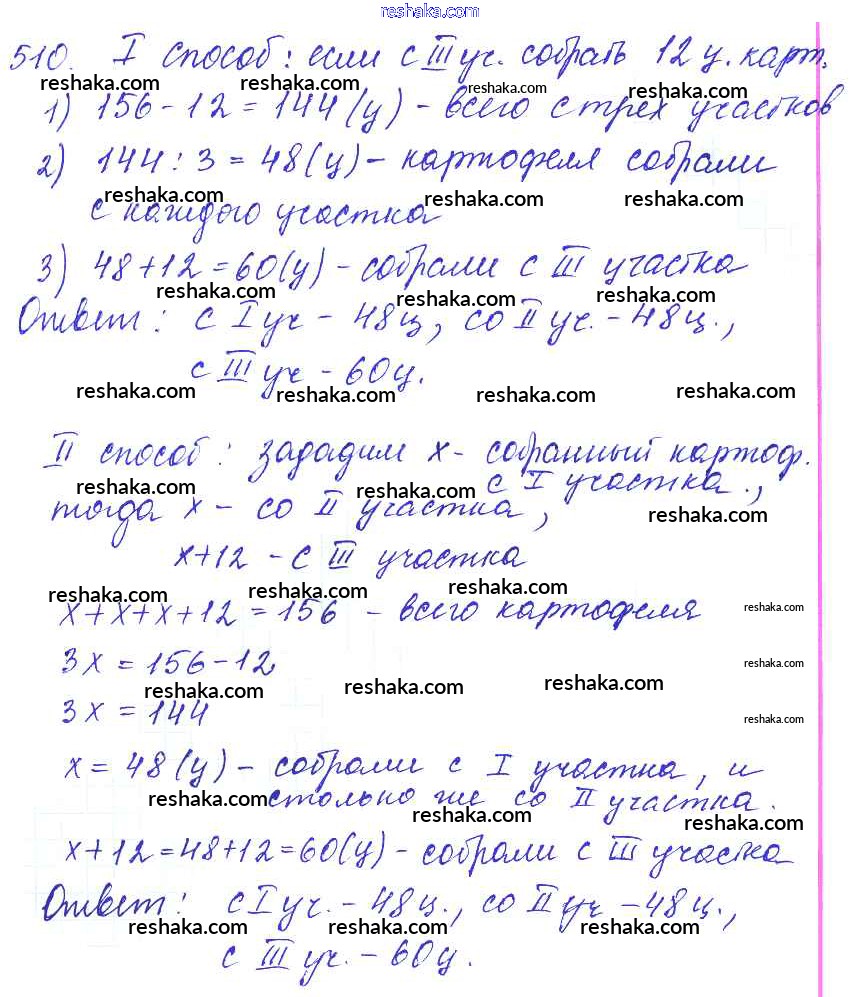 reshaka.com
510. I способ: если с III уч. собрать 12 ц. карт.
reshaka.com reshaka.com reshaka.com reshaka.com
1) 156 - 12 = 144 (ц) - всего с трех участков
2) 144 : 3 = 48 (ц) - картофеля собрали
reshaka.com reshaka.com reshaka.com
с каждого участка
3) 48 + 12 = 60 (ц) - собрали с III участка
reshaka.com reshaka.com reshaka.com
Ответ: с I уч - 48 ц, со II уч. - 48 ц.,
с III уч - 60 ц.
reshaka.com reshaka.com reshaka.com
II способ: зададим x - собранный картоф.
с I участка.,
reshaka.com reshaka.com reshaka.com
тогда x - со II участка,
x + 12 - с III участка
reshaka.com reshaka.com reshaka.com
x + x + x + 12 = 156 - всего картофеля
reshaka.com
3x = 156 - 12
reshaka.com
reshaka.com reshaka.com reshaka.com
3x = 144
reshaka.com
x = 48 (ц) - собрали с I участка, и
reshaka.com столько же со II участка.
reshaka.com reshaka.com
x + 12 = 48 + 12 = 60 (ц) - собрали с III участка
Ответ: с I уч. - 48 ц., со II уч - 48 ц.,
reshaka.com reshaka.com reshaka.com
с III уч. - 60 ц.